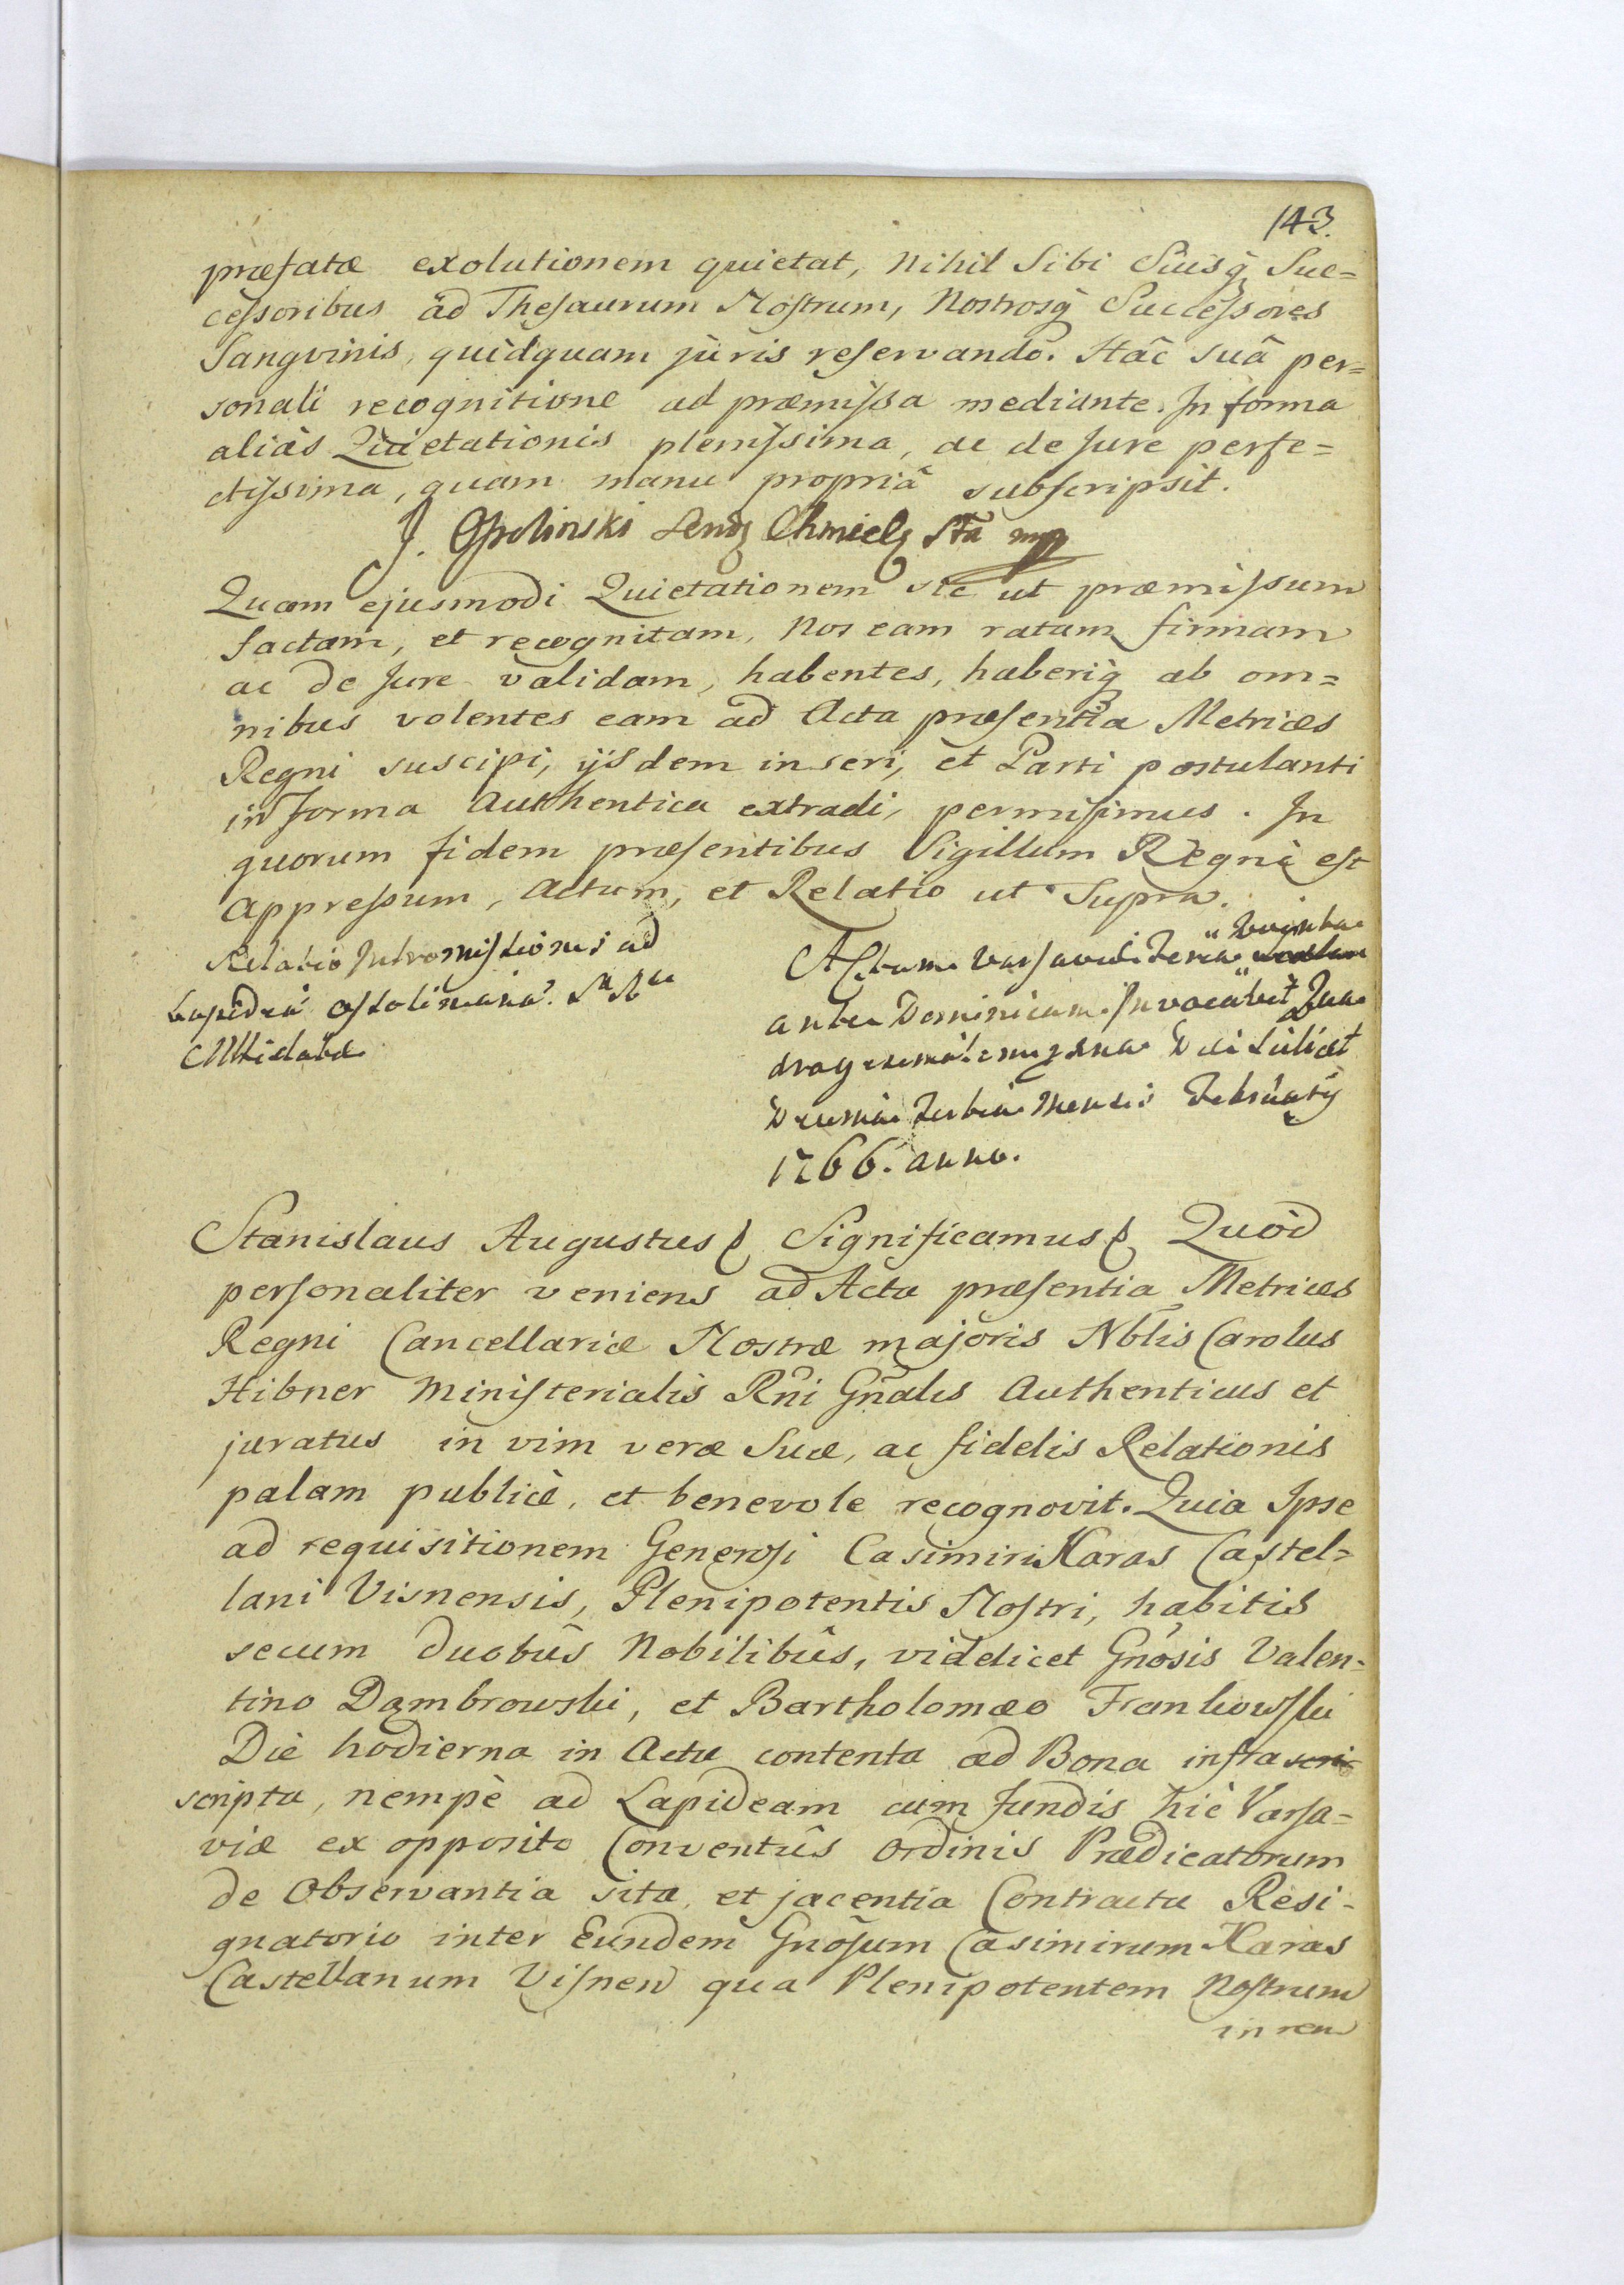 143.
præfatæ exolutionem quietat, Nihil Sibi Suisq, Suc=
cessoribus ad Thesaurum Nostrum, Nostrosq Successores
Sangvinis, quidquam juris reservando. Hâc suâ per=
sonali recognitione ad præmissa mediante. In forma
aliàs Quietationis plenissima, ac de Jure perfe=
ctissima, quam manu propriâ subscripsit.
J. Chmielg Stta mp
Quam ejusmodi Quietationem sic ut præmissum
factam, et recognitam, Nos eam ratam firmam
ac de Jure validam, habentes, haberiq ab om=
nibus volentes eam ad Acta præsentia Metrices
Regni suscipi, ijsdem inseri, et Parti postulanti
in forma Authentica extradi, permisimus. In
quorum fidem præsentibus Sigillum Regni est
appressum, Actum, et Relatio ut Supra.
Relatio Intromissionis ad
Lapideã Ossolinianã
Actum Varsaviæ Feria Quinta
ante Dominicam Invocavit Qua=
dragesimalem die scilicet
Decima Tertia Mensis Februarij
1766. anno.
Stanislaus Augustus Significamus Quòd
personaliter veniens ad Acta præsentia Metrices
Regni Cancellariæ Nostræ majoris Nblis Carolus
Hibner Ministerialis Rñi Gñalis Authenticus et
juratus in vim veræ Suæ, ac fidelis Relationis
palam publicè, et benevole recognovit. Quia Ipse
ad requisitionem Generosi Casimiri Karas Castel=
lani Visnensis, Plenipotentis Nostri, habitis
secum duobûs Nobilibûs, videlicet Gnosis Valen=
tino Dąmbrowski, et Bartholomæo Frankowski
Die hodierna in Actu contenta ad Bona infra scri=
scripta, nempè ad Lapideam cum fundis hic Varsa=
viæ ex opposito Conventûs Ordinis Prædicatorum
de Observantia sita, et jacentia Contractu Resi=
gnatorio inter Eundem Gnõsum Casimirum Karas
Castellanum Visnen qua Plenipotentem Nostrum
in rem